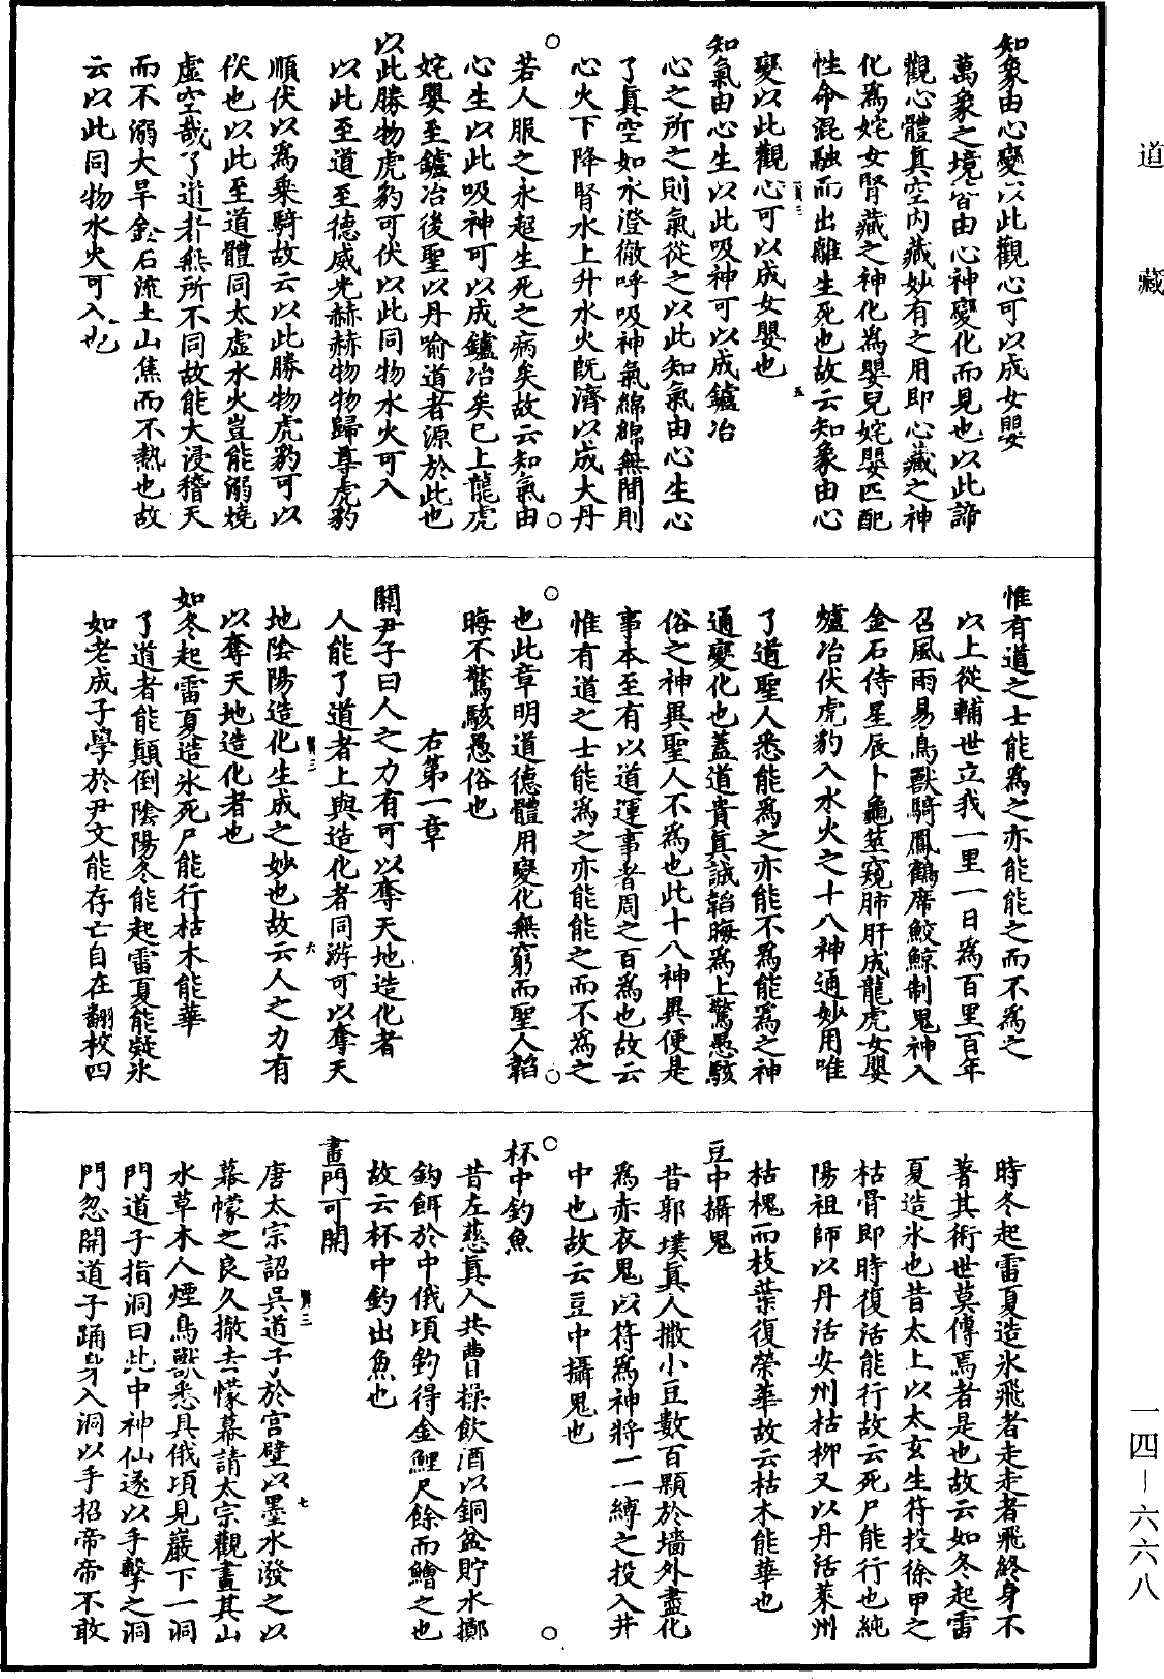 道藏
知象由心變以此觀心可以成女嬰
萬象之境皆由心神變化而見也以此諦
觀心體真空內藏妙有之用即心藏之神
化爲姹女腎藏之神化爲嬰兒姹嬰匹配
性命混融而出離生死也故云知象由心
變以此觀心可以成女嬰也
知氣由心生以此吸神可以成鑪冶
心之所之則氣從之以此知氣由心生心
了真空如水澄徹呼吸神氣綿綿無間則
心火下降腎水上升水火既濟以成大丹
若人服之永超生死之病矣故云知氣由
心生以此吸神可以成鑪冶矣已上龍虎
姹嬰至鑪冶後聖以丹喻道者源於此也
以此勝物虎豹可伏以此同物水火可入
以此至道至德威光赫赫物物歸尊虎豹
順伏以爲乘騎故云以此勝物虎豹可以
伏也以此至道體同太虛水火豈能溺燒
虛空哉了道者無所不同故能大浸稽天
而不溺大旱金石流土山焦而不熱也故
云以此同物水火可入也
惟有道之士能爲之亦能能之而不爲之
以上從輔世立我一里一日爲百里百年
召風雨易鳥獸騎鳳鶴席鮫鯨制鬼神入
金石侍星辰卜龜筮窺肺肝成龍虎女嬰
爐冶伏虎豹入水火之十八神通妙用唯
了道聖人悉能爲之亦能不爲能爲之神
通變化也蓋道貴真誠韜晦爲上驚愚駭
俗之神異聖人不爲也此十八神異便是
事本至有以道運事者周之百爲也故云
惟有道之士能爲之亦能能之而不爲之
也此章明道德體用變化無窮而聖人韜
晦不驚駭愚俗也
右第一章
關尹子曰人之力有可以奪天地造化者
人能了道者上與造化者同游可以奪天
地陰陽造化生成之妙也故云人之力有
以奪天地造化者也
如冬起雷夏造冰死尸能行枯木能華
了道者能顛倒陰陽冬能起雷夏能凝冰
如老成子學於尹文能存亡自在翻校四
時冬起雷夏造冰飛者走走者飛終身不
著其術世莫傳焉者是也故云如冬起雷
夏造冰也昔太上以太玄生符投徐甲之
枯骨即時復活能行故云死尸能行也純
陽祖師以丹活安州枯柳又以丹活萊州
枯槐而枝葉復榮華故云枯木能華也
豆中攝鬼
昔郭璞真人撒小豆數百顆於墻外盡化
爲赤衣鬼以符爲神將一一縛之投入井
中也故云豆中攝鬼也
杯中釣魚
昔左慈真人共曹操飲酒以銅盆貯水擲
鈎餌於中俄頃釣得金鯉尺餘而鱠之也
故云杯中釣出魚也
畫門可開
唐太宗詔吳道子於宮壁以墨水潑之以
幕幪之良久撤去幪幕請太宗觀畫其山
水草木人煙鳥獸悉具俄頃見巖下一洞
門道子指洞曰此中神仙遂以手擊之洞
門忽開道子踊身入洞以手招帝帝不敢
一四－六六八